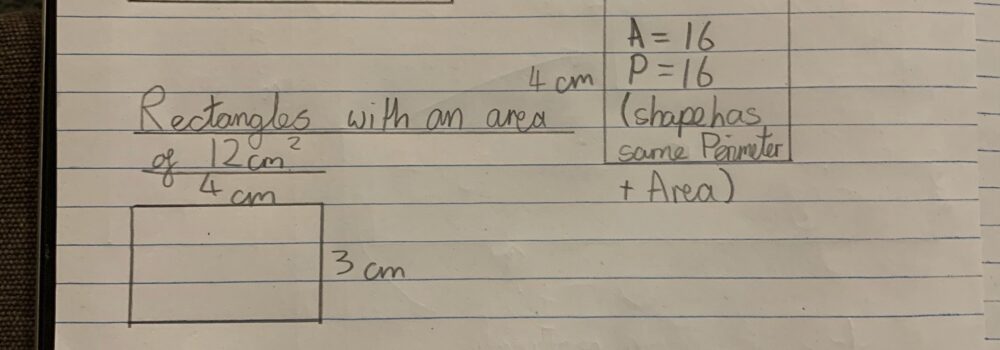 A = 16
P = 16
4 cm
(shape has
same Perimeter
+ Area)
Rectangles with an area
of 12cm²
4 cm
3 cm